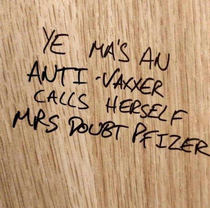 YE MA'S AN
ANTI-VAXXER
CALLS HERSELF
MRS DOUBT PFIZER